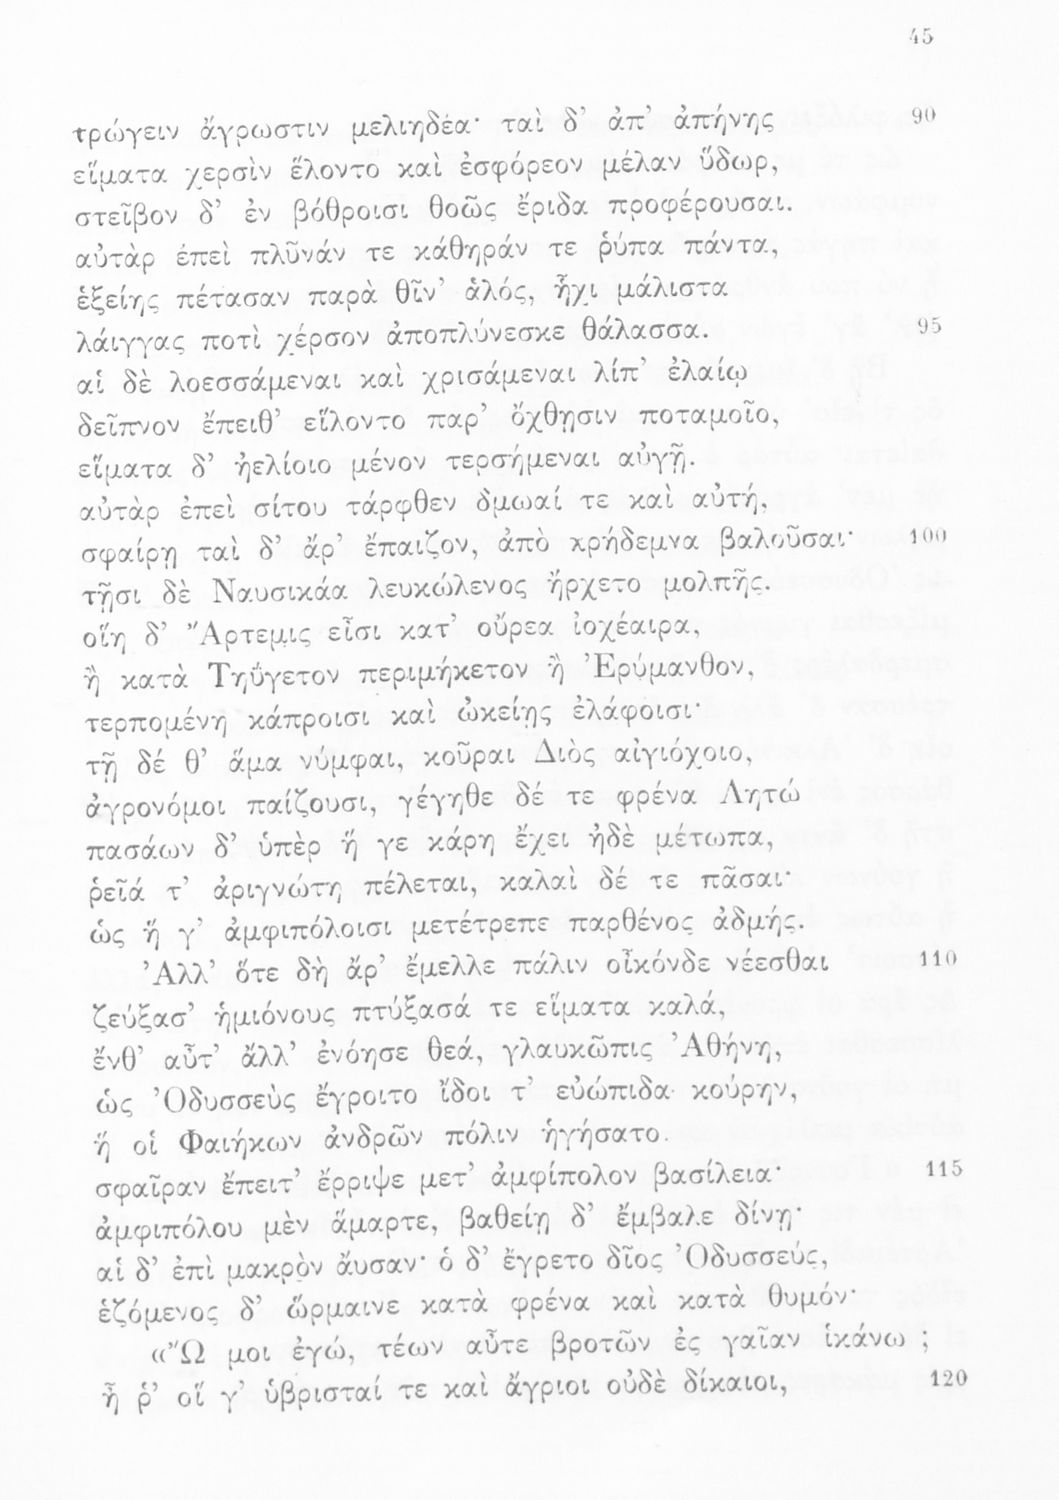 45
τρώγειν ἄγρωστιν μελιηδέα· ταὶ δ’ ἀπ’ ἀπήνης 90
εἵματα χερσὶν ἕλοντο καὶ ἐσφόρεον μέλαν ὕδωρ,
στεῖβον δ’ ἐν βόθροισι θοῶς ἔριδα προφέρουσαι.
αὐτὰρ ἐπεὶ πλῦνάν τε κάθηράν τε ῥύπα πάντα,
ἑξείης πέτασαν παρὰ θῖν’ ἁλός, ἧχι μάλιστα
λάιγγας ποτὶ χέρσον ἀποπλύνεσκε θάλασσα. 95
αἱ δὲ λοεσσάμεναι καὶ χρισάμεναι λίπ’ ἐλαίῳ
δεῖπνον ἔπειθ’ εἵλοντο παρ’ ὄχθῃσιν ποταμοῖο,
εἵματα δ’ ἠελίοιο μένον τερσήμεναι αὐγῇ.
αὐτὰρ ἐπεὶ σίτου τάρφθεν δμωαί τε καὶ αὐτή,
σφαίρῃ ταὶ δ’ ἄρ’ ἔπαιζον, ἀπὸ κρήδεμνα βαλοῦσαι· 100
τῇσι δὲ Ναυσικάα λευκώλενος ἤρχετο μολπῆς.
οἵη δ’ Ἄρτεμις εἶσι κατ’ οὔρεα ἰοχέαιρα,
ἢ κατὰ Τηΰγετον περιμήκετον ἢ Ἐρύμανθον,
τερπομένη κάπροισι καὶ ὠκείῃς ἐλάφοισι·
τῇ δέ θ’ ἅμα νύμφαι, κοῦραι Διὸς αἰγιόχοιο,
ἀγρονόμοι παίζουσι, γέγηθε δέ τε φρένα Λητώ
πασάων δ’ ὑπὲρ ἥ γε κάρη ἔχει ἠδὲ μέτωπα,
ῥεῖά τ’ ἀριγνώτη πέλεται, καλαὶ δέ τε πᾶσαι·
ὣς ἥ γ’ ἀμφιπόλοισι μετέτρεπε παρθένος ἀδμής.
Ἀλλ’ ὅτε δὴ ἄρ’ ἔμελλε πάλιν οἶκόνδε νέεσθαι 110
ζεύξασ’ ἡμιόνους πτύξασά τε εἵματα καλά,
ἔνθ’ αὖτ’ ἄλλ’ ἐνόησε θεά, γλαυκῶπις Ἀθήνη,
ὡς Ὀδυσσεὺς ἔγροιτο ἴδοι τ’ εὐώπιδα κούρην,
ἥ οἱ Φαιήκων ἀνδρῶν πόλιν ἡγήσατο.
σφαῖραν ἔπειτ’ ἔρριψε μετ’ ἀμφίπολον βασίλεια· 115
ἀμφιπόλου μὲν ἅμαρτε, βαθείῃ δ’ ἔμβαλε δίνῃ·
αἱ δ’ ἐπὶ μακρὸν ἄυσαν· ὁ δ’ ἔγρετο δῖος Ὀδυσσεύς,
ἑζόμενος δ’ ὥρμαινε κατὰ φρένα καὶ κατὰ θυμόν·
«Ὤ μοι ἐγώ, τέων αὖτε βροτῶν ἐς γαῖαν ἱκάνω ;
ἦ ῥ’ οἵ γ’ ὑβρισταί τε καὶ ἄγριοι οὐδὲ δίκαιοι, 120